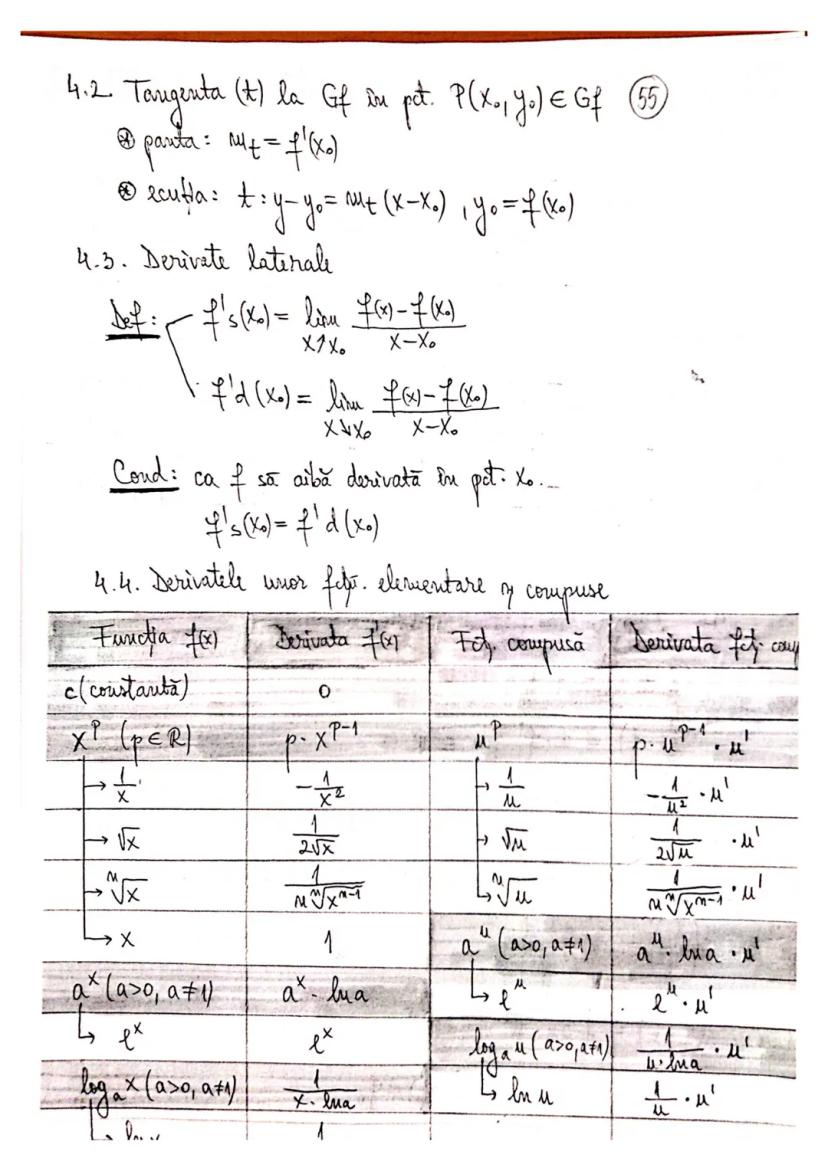 4.2. Tangenta (t) la Gf în pct. P(x₀, y₀) ∈ Gf (55)
⊛ panta: m_t = f'(x₀)
⊛ ecuția: t: y-y₀ = m_t (x-x₀), y₀ = f(x₀)
4.3. Derivate laterale
Def: f's(x₀) = lim x↗x₀ (f(x)-f(x₀))/(x-x₀)
f'd(x₀) = lim x↘x₀ (f(x)-f(x₀))/(x-x₀)
Cond: ca f să aibă derivată în pct. x₀...
f's(x₀) = f'd(x₀)
4.4. Derivatele unor fcții. elementare și compuse
Funcția f(x) | Derivata f'(x) | Fcț. compusă | Derivata fcț. comp
c (constantă) | 0
x^p (p∈ℝ) | p·x^(p-1) | u^p | p·u^(p-1)·u'
→ 1/x | -1/x² | → 1/u | -1/u²·u'
→ √x | 1/(2√x) | → √u | 1/(2√u)·u'
→ ⁿ√x | 1/(n ⁿ√(x^(n-1))) | → ⁿ√u | 1/(n ⁿ√(x^(n-1)))·u'
→ x | 1 | a^u (a>0, a≠1) | a^u·ln a·u'
a^x (a>0, a≠1) | a^x·ln a | → e^u | e^u·u'
→ e^x | e^x | log_a u (a>0, a≠1) | 1/(u·ln a)·u'
log_a x (a>0, a≠1) | 1/(x·ln a) | → ln u | 1/u·u'
→ ln x | 1